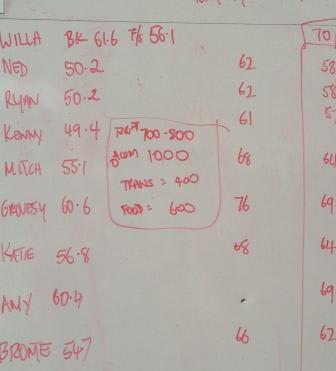 WILLA BK 61.6 F/S 56.1 70
NED 50.2 62 58
RYAN 50.2 62 58
61
KENNY 49.4 700-800
ROOM 1000 68 64
MITCH 55.1
TRANS = 400
GRAVESY 60.6 FOOD = 600 76 69
KATIE 56.8 68 64
AMY 60.4 69
BROME 547 66 62